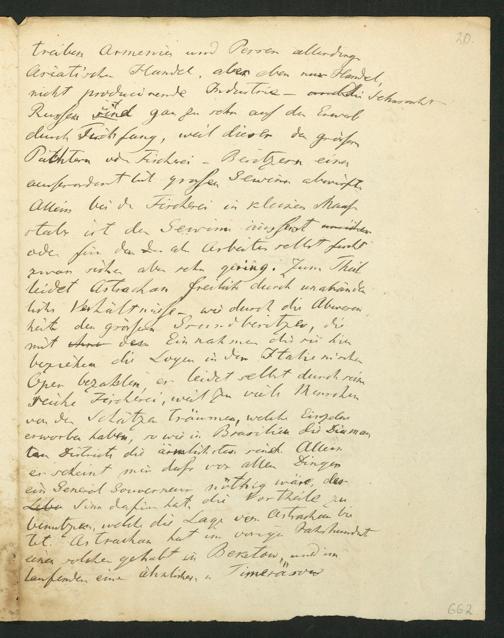 20.
treiben Armenier und Perser allerdings
Asiatischen Handel, aber eben nur Handel,
nicht producirende Industrie – die Sehnsucht
Russen ist ganz zu sehr auf den Erwerb
durch Fischfang, weil dieser den großen
Pächtern von Fischerei-Besitzern einen
ausserordentlich großen Gewinn abwirft.
Allein bei der Fischerei in kleinem Maaß-
stabe ist der Gewinn
oder für den der als Arbeiter selbst
zwar sicher aber sehr gering. Zum Theil
leidet Astrachan freilich durch unabänder-
liche Verhältnisse – wie durch die Abwesen-
heit der großen Grundbesitzer, die
mit den Einnahmen die sie hier
beziehen die Logen in den Italienischen
Oper bezahlen, er leidet selbst durch seine
reiche Fischerei, weil zu viele Menschen
von den Schätzen träumen, welche Einzelne
erworben haben, so wie in Brasilien die Diaman-
ten Districte die ärmlichsten sind. Allein
es scheint mir daß vor allen Dingen
ein General Gouverneur nöthig wäre, der
Sinn dafür hat, die Vortheile zu
benutzen, welche die Lage von Astrachan bie-
tet. Astrachan hat im vorigen Jahrhundert
einen solchen gehabt in Beketow, und im
laufenden einen ähnlichen in Timeräsew
662